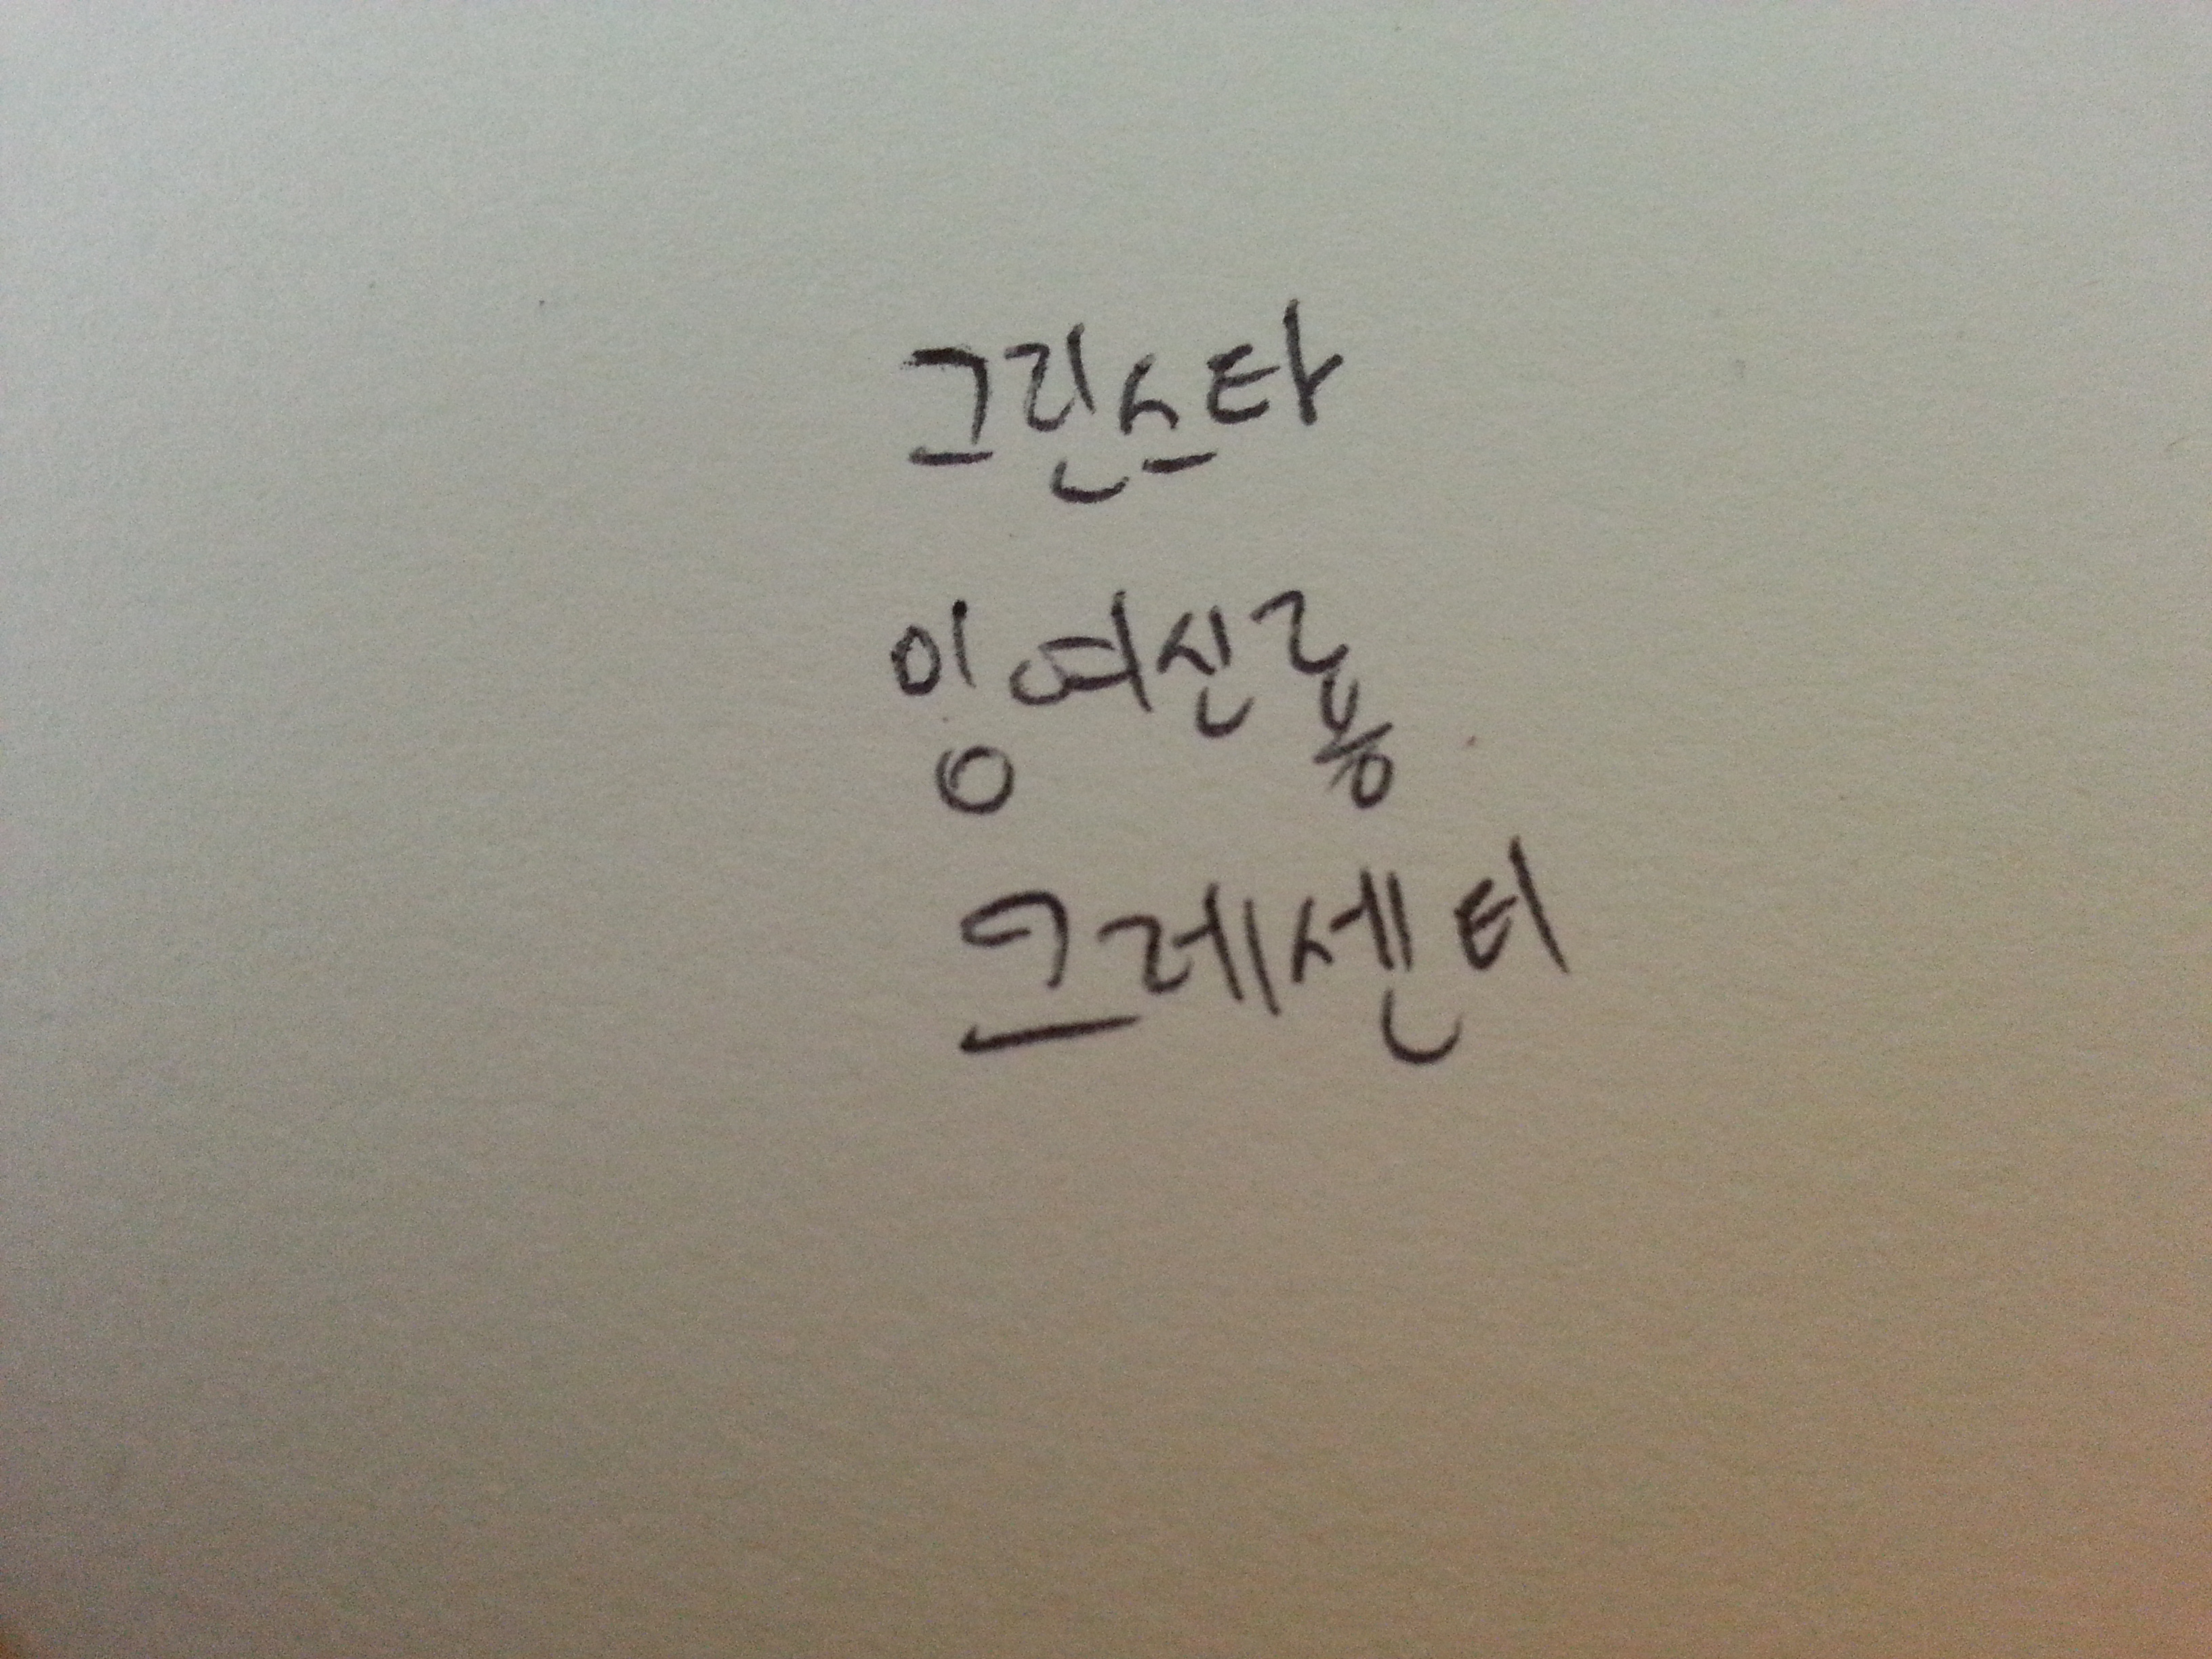 그린스타
잉여신룡
크레센터